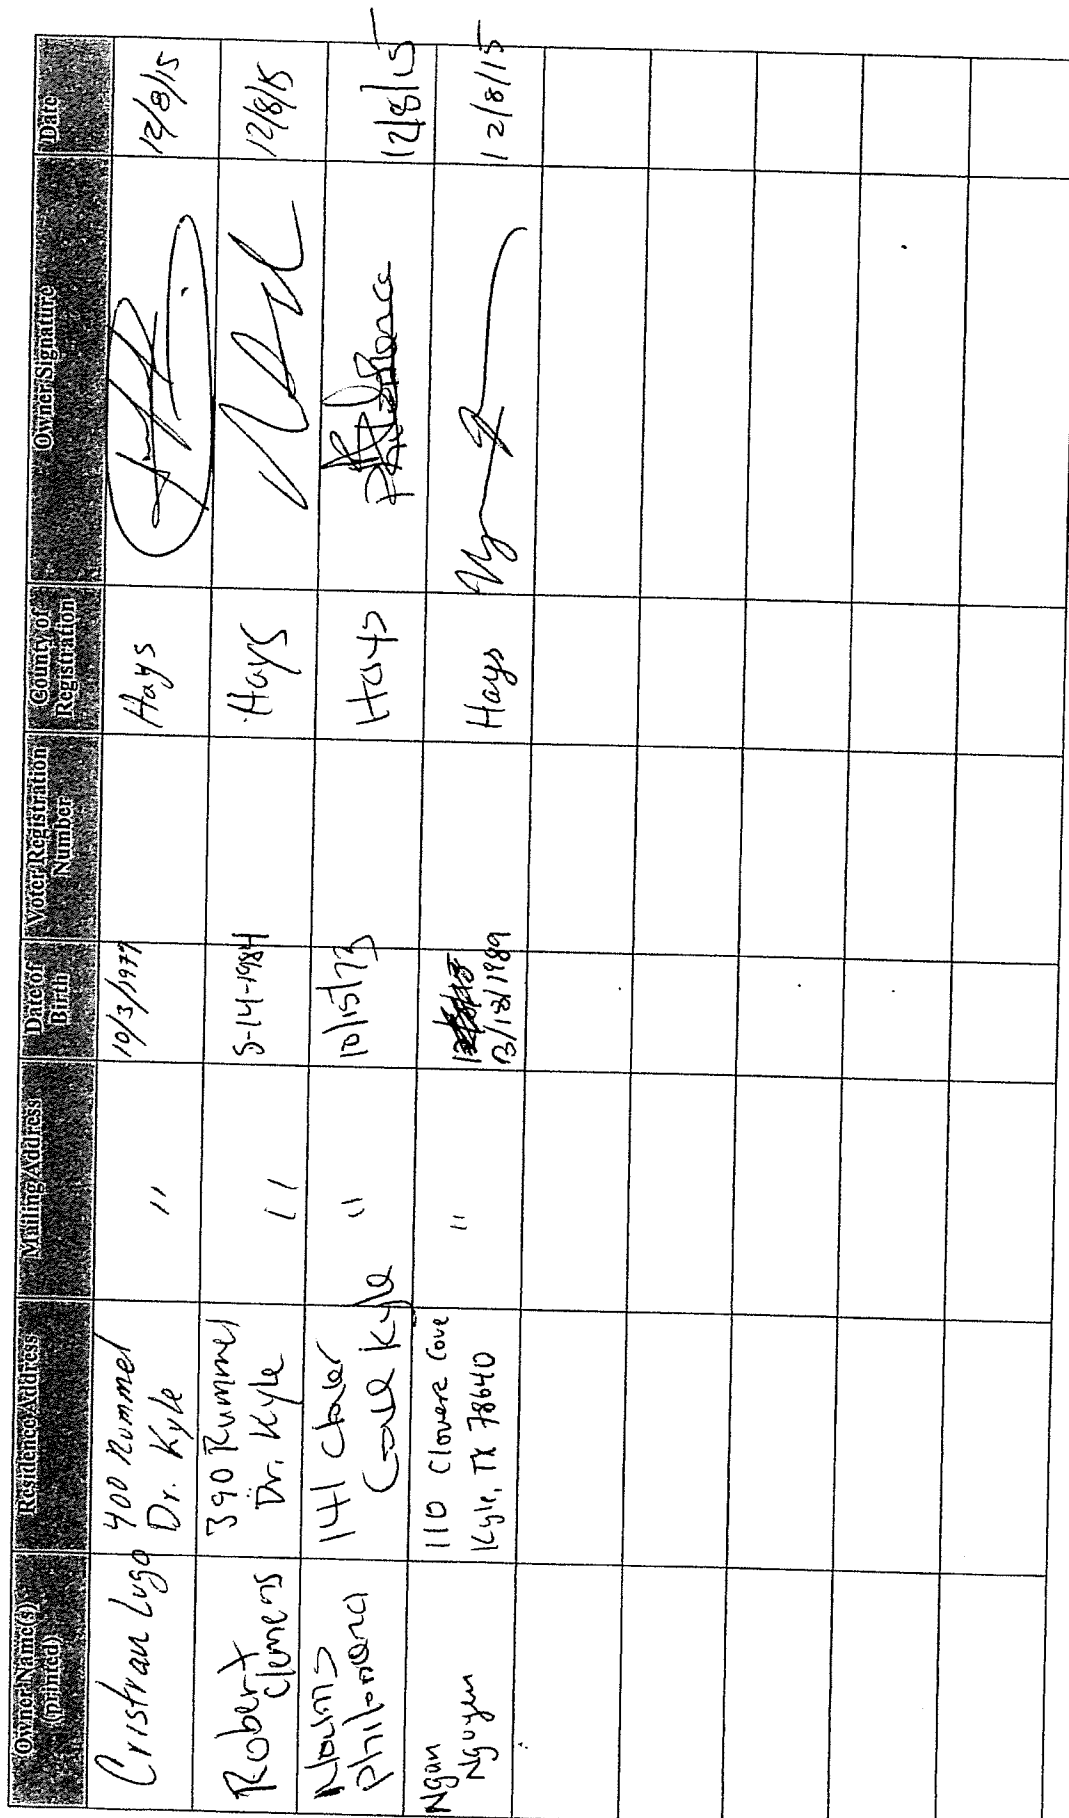 Owner Name(s)
(printed)
Residence Address
Mailing Address
Date of
Birth
Voter Registration
Number
County of
Registration
Owner Signature
Date
Cristian Lugo
400 Rummel
Dr. Kyle
"
10/3/1977
Hays
12/8/15
Robert
Clemens
390 Rummel
Dr. Kyle
"
5-14-1984
Hays
12/8/15
141 Clover
Cove Kyle
"
10/15/73
Hays
12/8/15
Ngan
Nguyen
110 Clovere Cove
Kyle, TX 78640
"
Hays
12/8/15